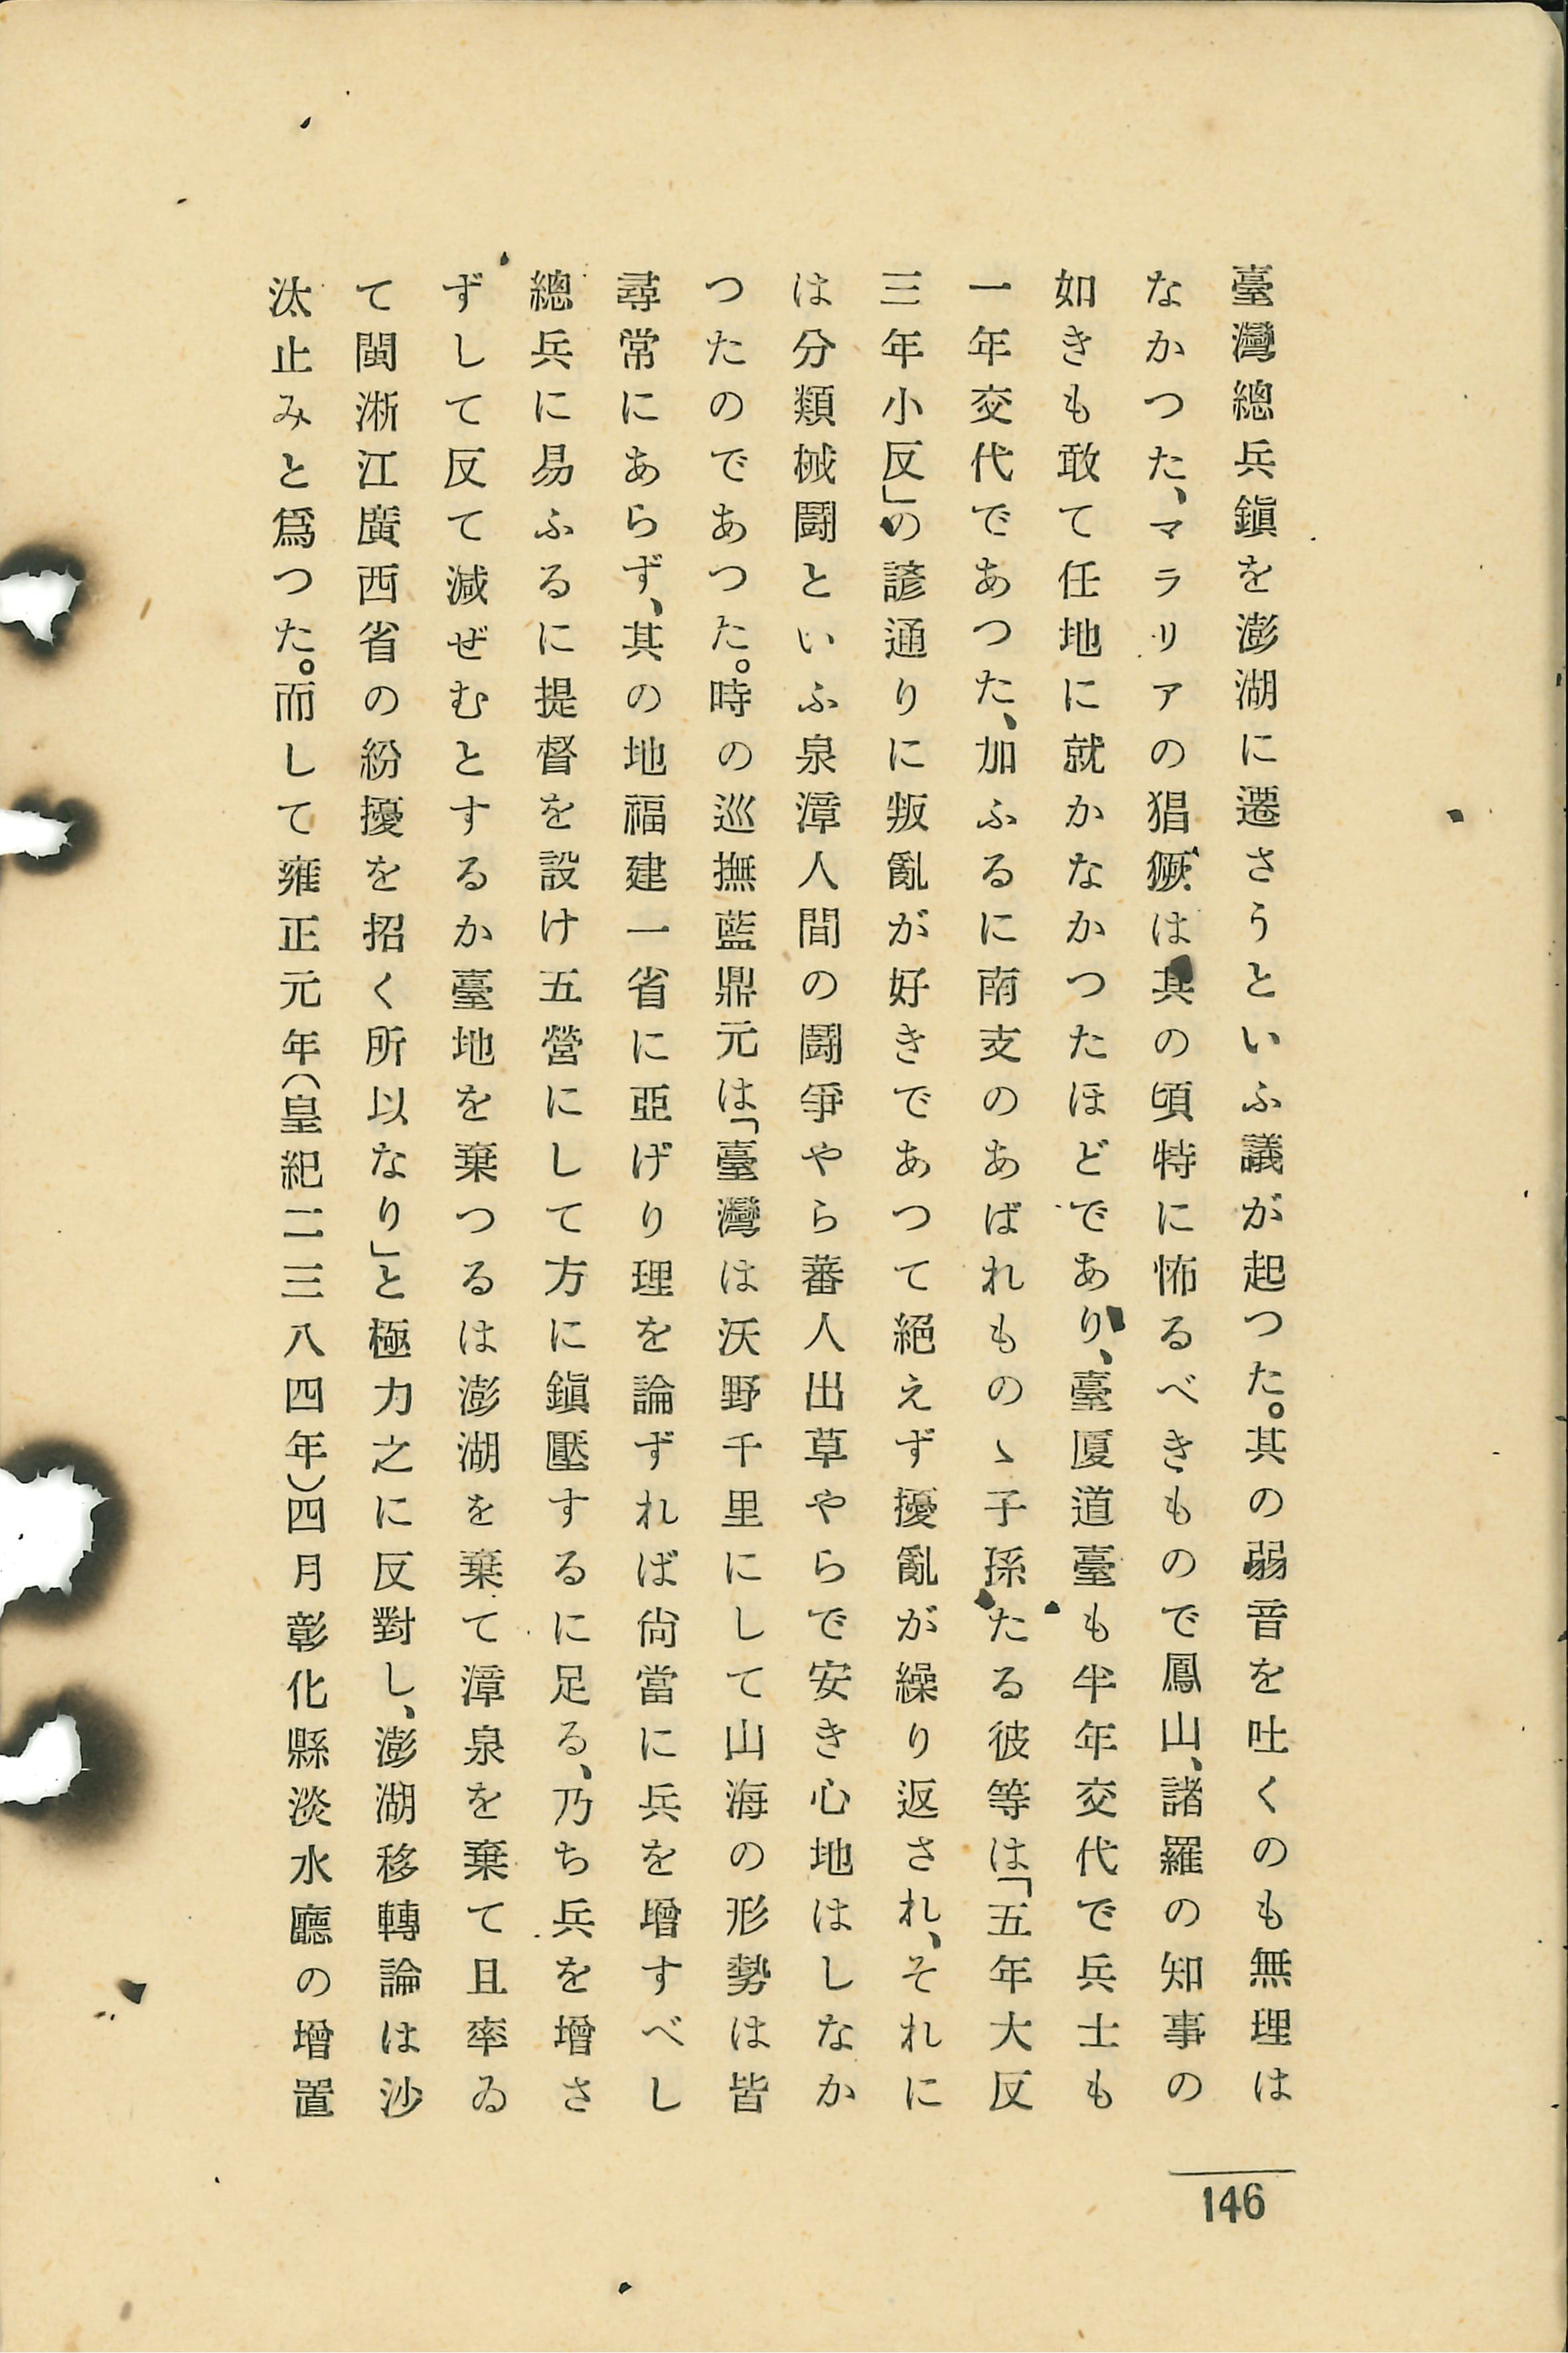 臺灣總兵鎭を澎湖に遷さうといふ議が起つた。其の弱音を吐くのも無理は
なかつた、マラリアの猖獗は其の頃特に怖るべきもので鳳山、諸羅の知事の
如きも敢て任地に就かなかつたほどであり、臺厦道臺も半年交代で兵士も
一年交代であつた、加ふるに南支のあばれものゝ子孫たる彼等は「五年大反
三年小反」の諺通りに叛亂が好きであつて絕えず擾亂が繰り返され、それに
は分類械鬪といふ泉漳人間の鬪爭やら蕃人出草やらで安き心地はしなか
つたのであつた。時の巡撫藍鼎元は「臺灣は沃野千里にして山海の形勢は皆
尋常にあらず、其の地福建一省に亞げり理を論ずれば尙當に兵を增すべし
總兵に易ふるに提督を設け五營にして方に鎭壓するに足る、乃ち兵を增さ
ずして反て減ぜむとするか臺地を棄つるは澎湖を棄て漳泉を棄て且率ゐ
て閩淅江廣西省の紛擾を招く所以なり」と極力之に反對し、澎湖移轉論は沙
汰止みと爲つた。而して雍正元年(皇紀二三八四年)四月彰化縣淡水廳の增置
146